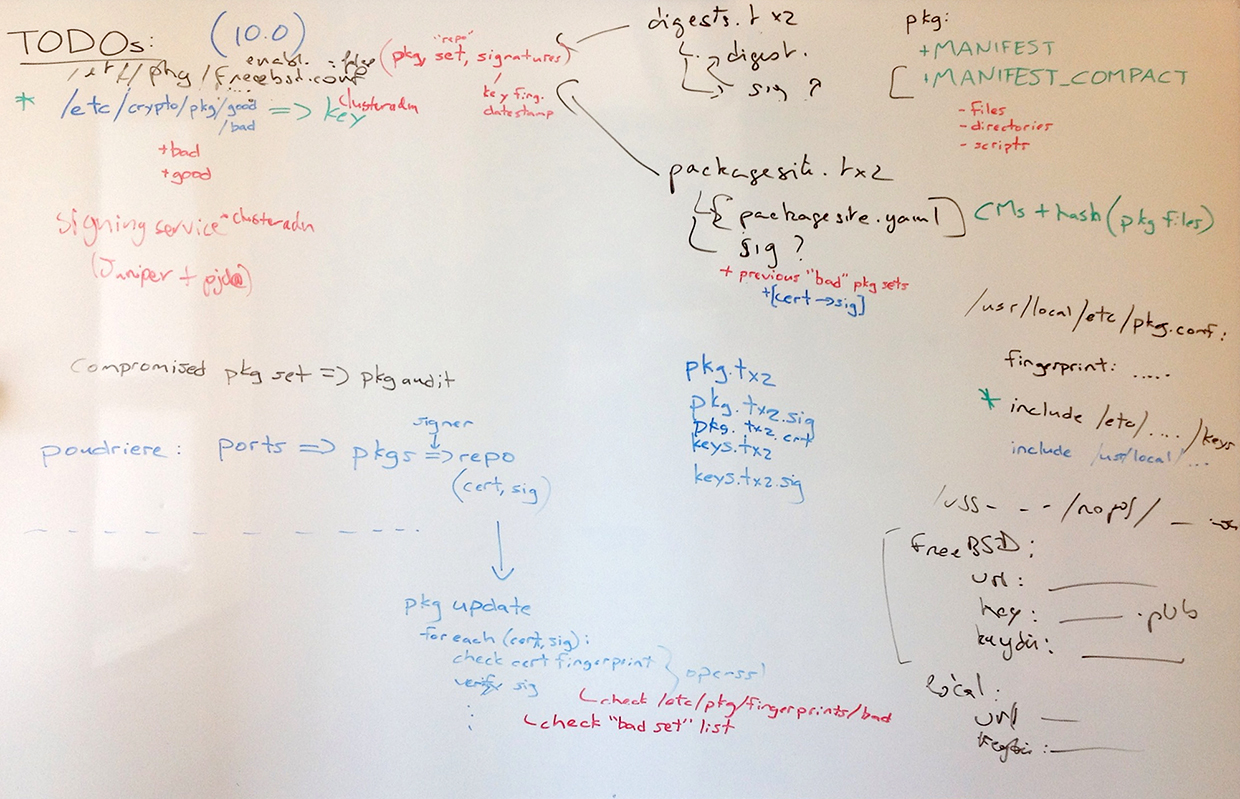 TODOs:
(10.0)
enabl. : false
/etc/pkg/freebsd.conf
"repo"
(pkg, set, signatures)
key fing.
datestamp
* /etc/crypto/pkg/good => key clusteradm
/bad
+bad
+good
signing service - clusteradm
(Juniper + pjd@)
digests.txz
digest.
sig ?
packagesite.txz
packagesite.yaml
sig ?
CMs + hash(pkg files)
+ previous "bad" pkg sets
+[cert -> sig]
pkg:
+MANIFEST
+MANIFEST_COMPACT
- files
- directories
- scripts
compromised pkg set => pkg audit
signer
poudriere: ports => pkgs => repo
(cert, sig)
pkg update
for each (cert, sig):
check cert fingerprint } openssl
verify sig
check /etc/pkg/fingerprints/bad
check "bad set" list
pkg.txz
pkg.txz.sig
pkg.txz.crt
keys.txz
keys.txz.sig
/usr/local/etc/pkg.conf:
fingerprint: .....
* include /etc/..../keys
include /usr/local/...
FreeBSD:
url:
key: .pub
keydir:
local:
url
keydir: